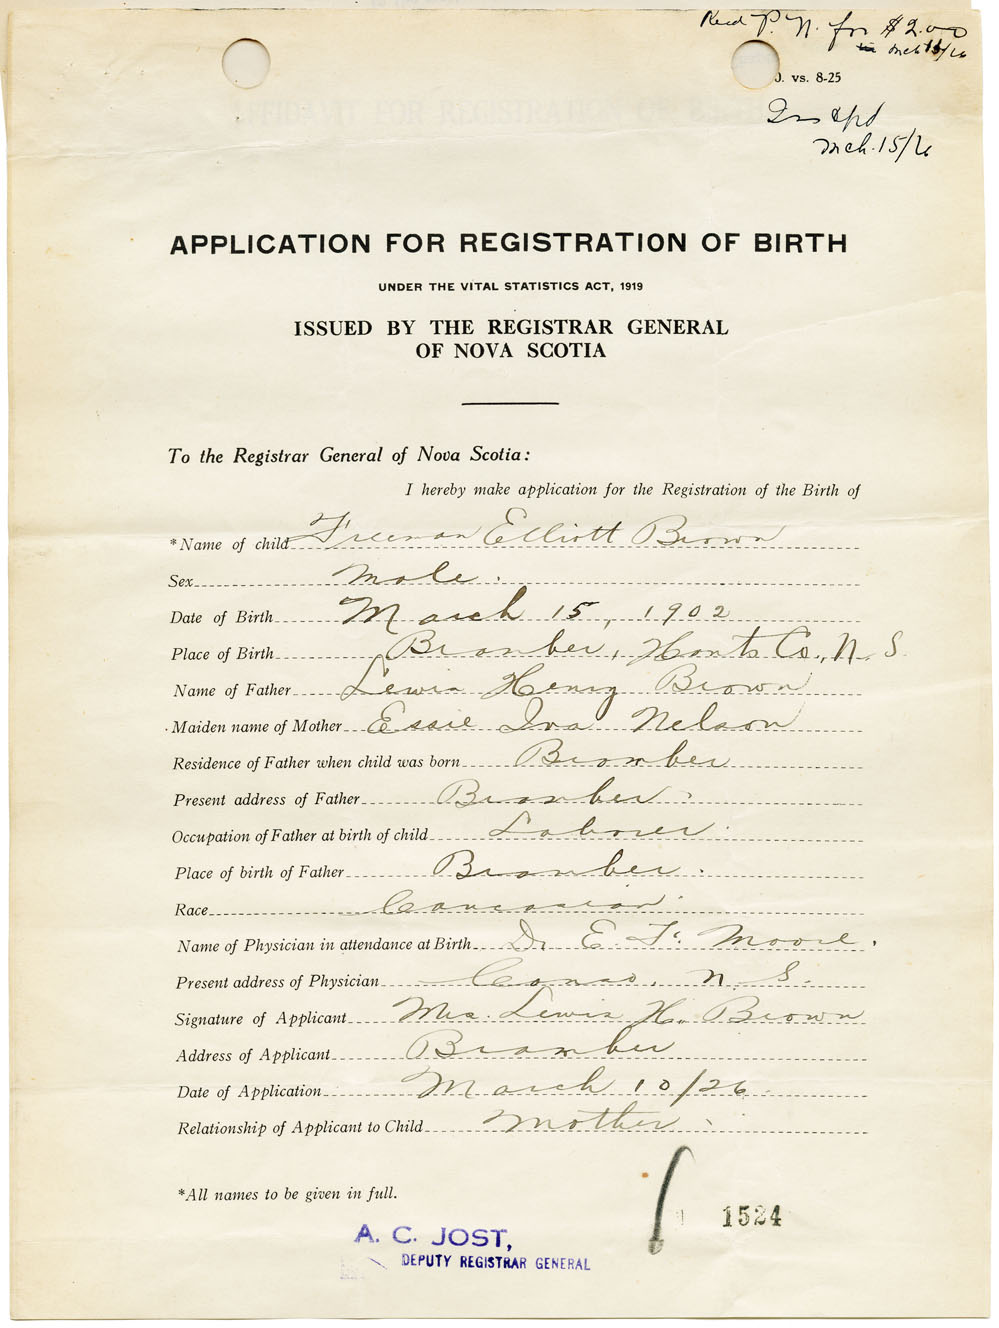 Recd P. N. for $2.00
Mch 15/26
O. vs. 8-25
Mch. 15/26
APPLICATION FOR REGISTRATION OF BIRTH
UNDER THE VITAL STATISTICS ACT, 1919
ISSUED BY THE REGISTRAR GENERAL
OF NOVA SCOTIA
To the Registrar General of Nova Scotia:
I hereby make application for the Registration of the Birth of
*Name of child Freeman Elliott Brown
Sex Male.
Date of Birth March 15, 1902
Place of Birth Bramber, Hants Co., N. S.
Name of Father Lewis Henry Brown
Maiden name of Mother Essie Iva Nelson
Residence of Father when child was born Bramber
Present address of Father Bramber.
Occupation of Father at birth of child Laborer.
Place of birth of Father Bramber.
Race Caucasian.
Name of Physician in attendance at Birth Dr. E. F. Moore.
Present address of Physician Canso, N. S.
Signature of Applicant Mrs. Lewis H. Brown
Address of Applicant Bramber
Date of Application March 10/26.
Relationship of Applicant to Child Mother.
*All names to be given in full.
1524
A. C. JOST,
DEPUTY REGISTRAR GENERAL